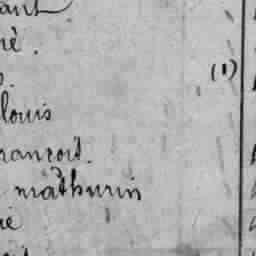 ant
né.
(1)
louis
rancois.
mathurin